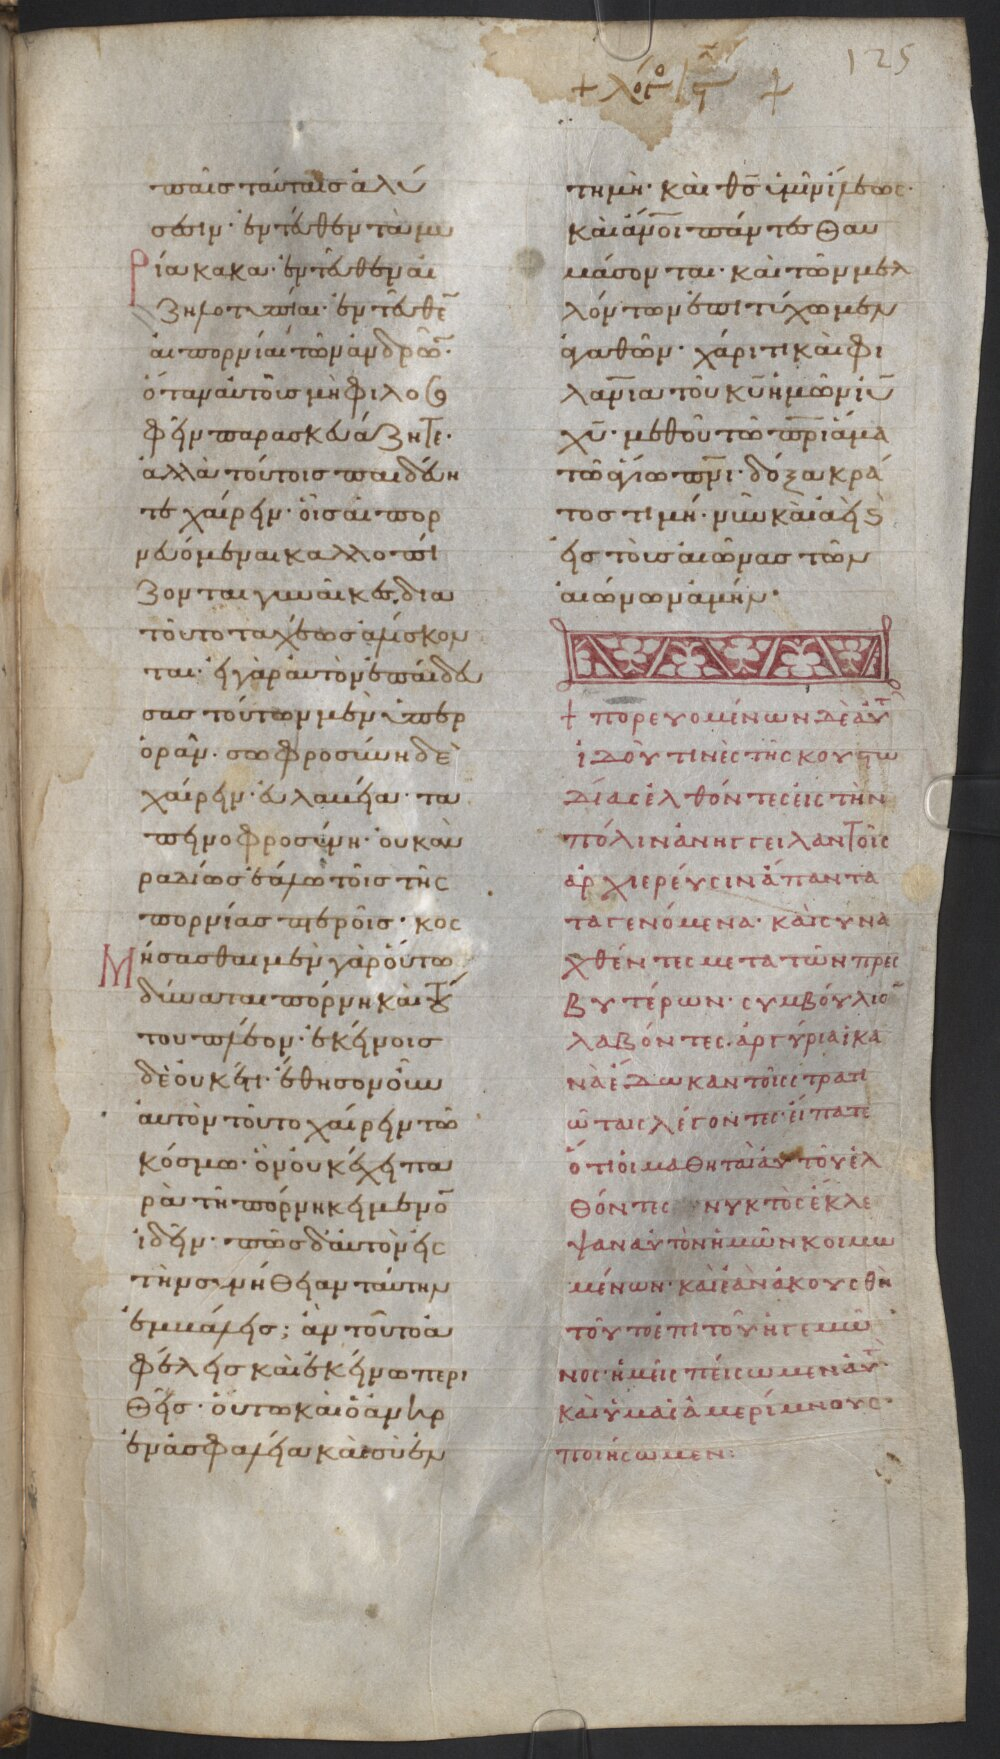 125
+ λόγο ϟ +
παις ταύταις ἁλύ
σεσιν· ἐντεῦθεν τὰ μυ
ρία κακά· ἐντεῦθεν αἱ
ζηλοτυπίαι· ἐντεῦθε̅
αἱ πορνίαι τῶν ἀνδρῶ̅·
ὅταν αὐτοῖς μὴ φιλοσο
φεῖν παρασκευάζητε·
ἀλλὰ τούτοις παιδεύη
τε χαίρειν· οἷς αἱ πορ
νευόμεναι καλλοπί
ζονται γυναῖκες· δια
τοῦτο ταχέως ἁλίσκον
ται· εἰ γὰρ αὐτὸν ἐπαίδευ
σας τούτων μὲν ὑπερ
ορᾶν· σωφροσύνη δὲ
χαίρειν· εὐλαβεία· τα
πεινοφροσύνη· οὐκ ἂν
ραδίως ἑάλω τοῖς τῆς
πορνίας πτεροῖς· κοσ
Μήσασθαι μὲν γὰρ οὕτω
δύναται πόρνη καὶ τού
του πλέον· ἐκείνοις
δὲ οὐκέτι· ἔθησον οὖν
αὐτὸν τοῦτο χαίρειν τῶ
κόσμω· ὃν οὐκ ἔχει πα
ρὰ τῆ πόρνη κείμενο̅
ἰδεῖν· πῶς δ' αὐτὸν εἰς
τὴν συνήθειαν ταύτην
ἐμβάλεις; ἂν τοῦτο ἀ
φέλης καὶ ἐκείνω περι
θῆς· οὕτω καὶ ὁ ἀνὴρ
ἐν ἀσφαλεία καὶ σὺ ἐν
τημὴ· καὶ θς̅ ὑμῖν ἵλεως·
καὶ ἄν̅οι πάντες θαυ
μάσονται· καὶ τῶν μελ
λόντων ἐπιτύχωμεν
ἀγαθῶν· χάριτι καὶ φι
λαν̅ία τοῦ κυ̅ ἡμῶν ιυ̅
χυ̅· μεθ' οὗ τῶ πρ̅ι ἅμα
τῶ ἁγίω πν̅ι· δόξα κρά
τος τιμή· νῦν καὶ ἀεὶ ϗ
εἰς τοὺς αἰῶνας τῶν
αἰώνων ἀμήν·
+ πορευομένων δὲ αὐτ
ἰδού τινὲς τῆς κουστω
δίας ἐλθόντες εἰς τὴν
πόλιν ἀνήγγειλαν τοῖς
ἀρχιερεύσιν ἅπαντα
τὰ γενόμενα· καὶ συνα
χθέντες μετὰ τῶν πρεσ
βυτέρων· συμβούλιο̅
λαβόντες· ἀργύρια ἱκα
νὰ ἔδωκαν τοῖς στρατι
ώταις λέγοντες· εἴπατε
ὅτι οἱ μαθηταὶ αὐτοῦ ἐλ
θόντες νυκτὸς ἔκλε
ψαν αὐτὸν ἡμῶν κοιμω
μένων· καὶ ἐὰν ἀκουσθῆ
τοῦτο ἐπὶ τοῦ ἡγεμῶ
νος· ἡμεῖς πείσωμεν αὐτ·
καὶ ὑμᾶς ἀμερίμνους·
ποιήσωμεν: